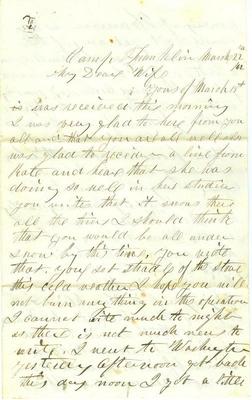 Camp Franklin March 22
My Dear Wife
Yours of March 18th
is was received this morning
I was very glad to here from you
all and that you are all well also
was glad to receive a line from
Kate and hear that she has
doing so well in her studies
you write that it snows there
all the time I should think
that you would be all under
snow by this time, you wrote
that you set stradle of the stove
this cold weather I hope you will
not burn anything in the operation
I cannot write much to night
as there is not much news to
write. I went to Washington
yesterday afternoon got back
this day noon I got a little